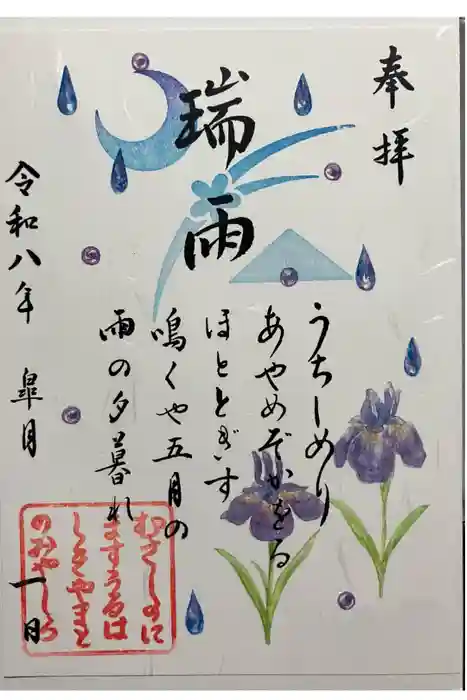 奉拝
瑞雨
うちしめり
あやめぞかをる
ほととぎす
鳴くや五月の
雨の夕暮れ
令和八年 皐月 一日
むさしのに
ますうるは
しきやまと
のおやしろ